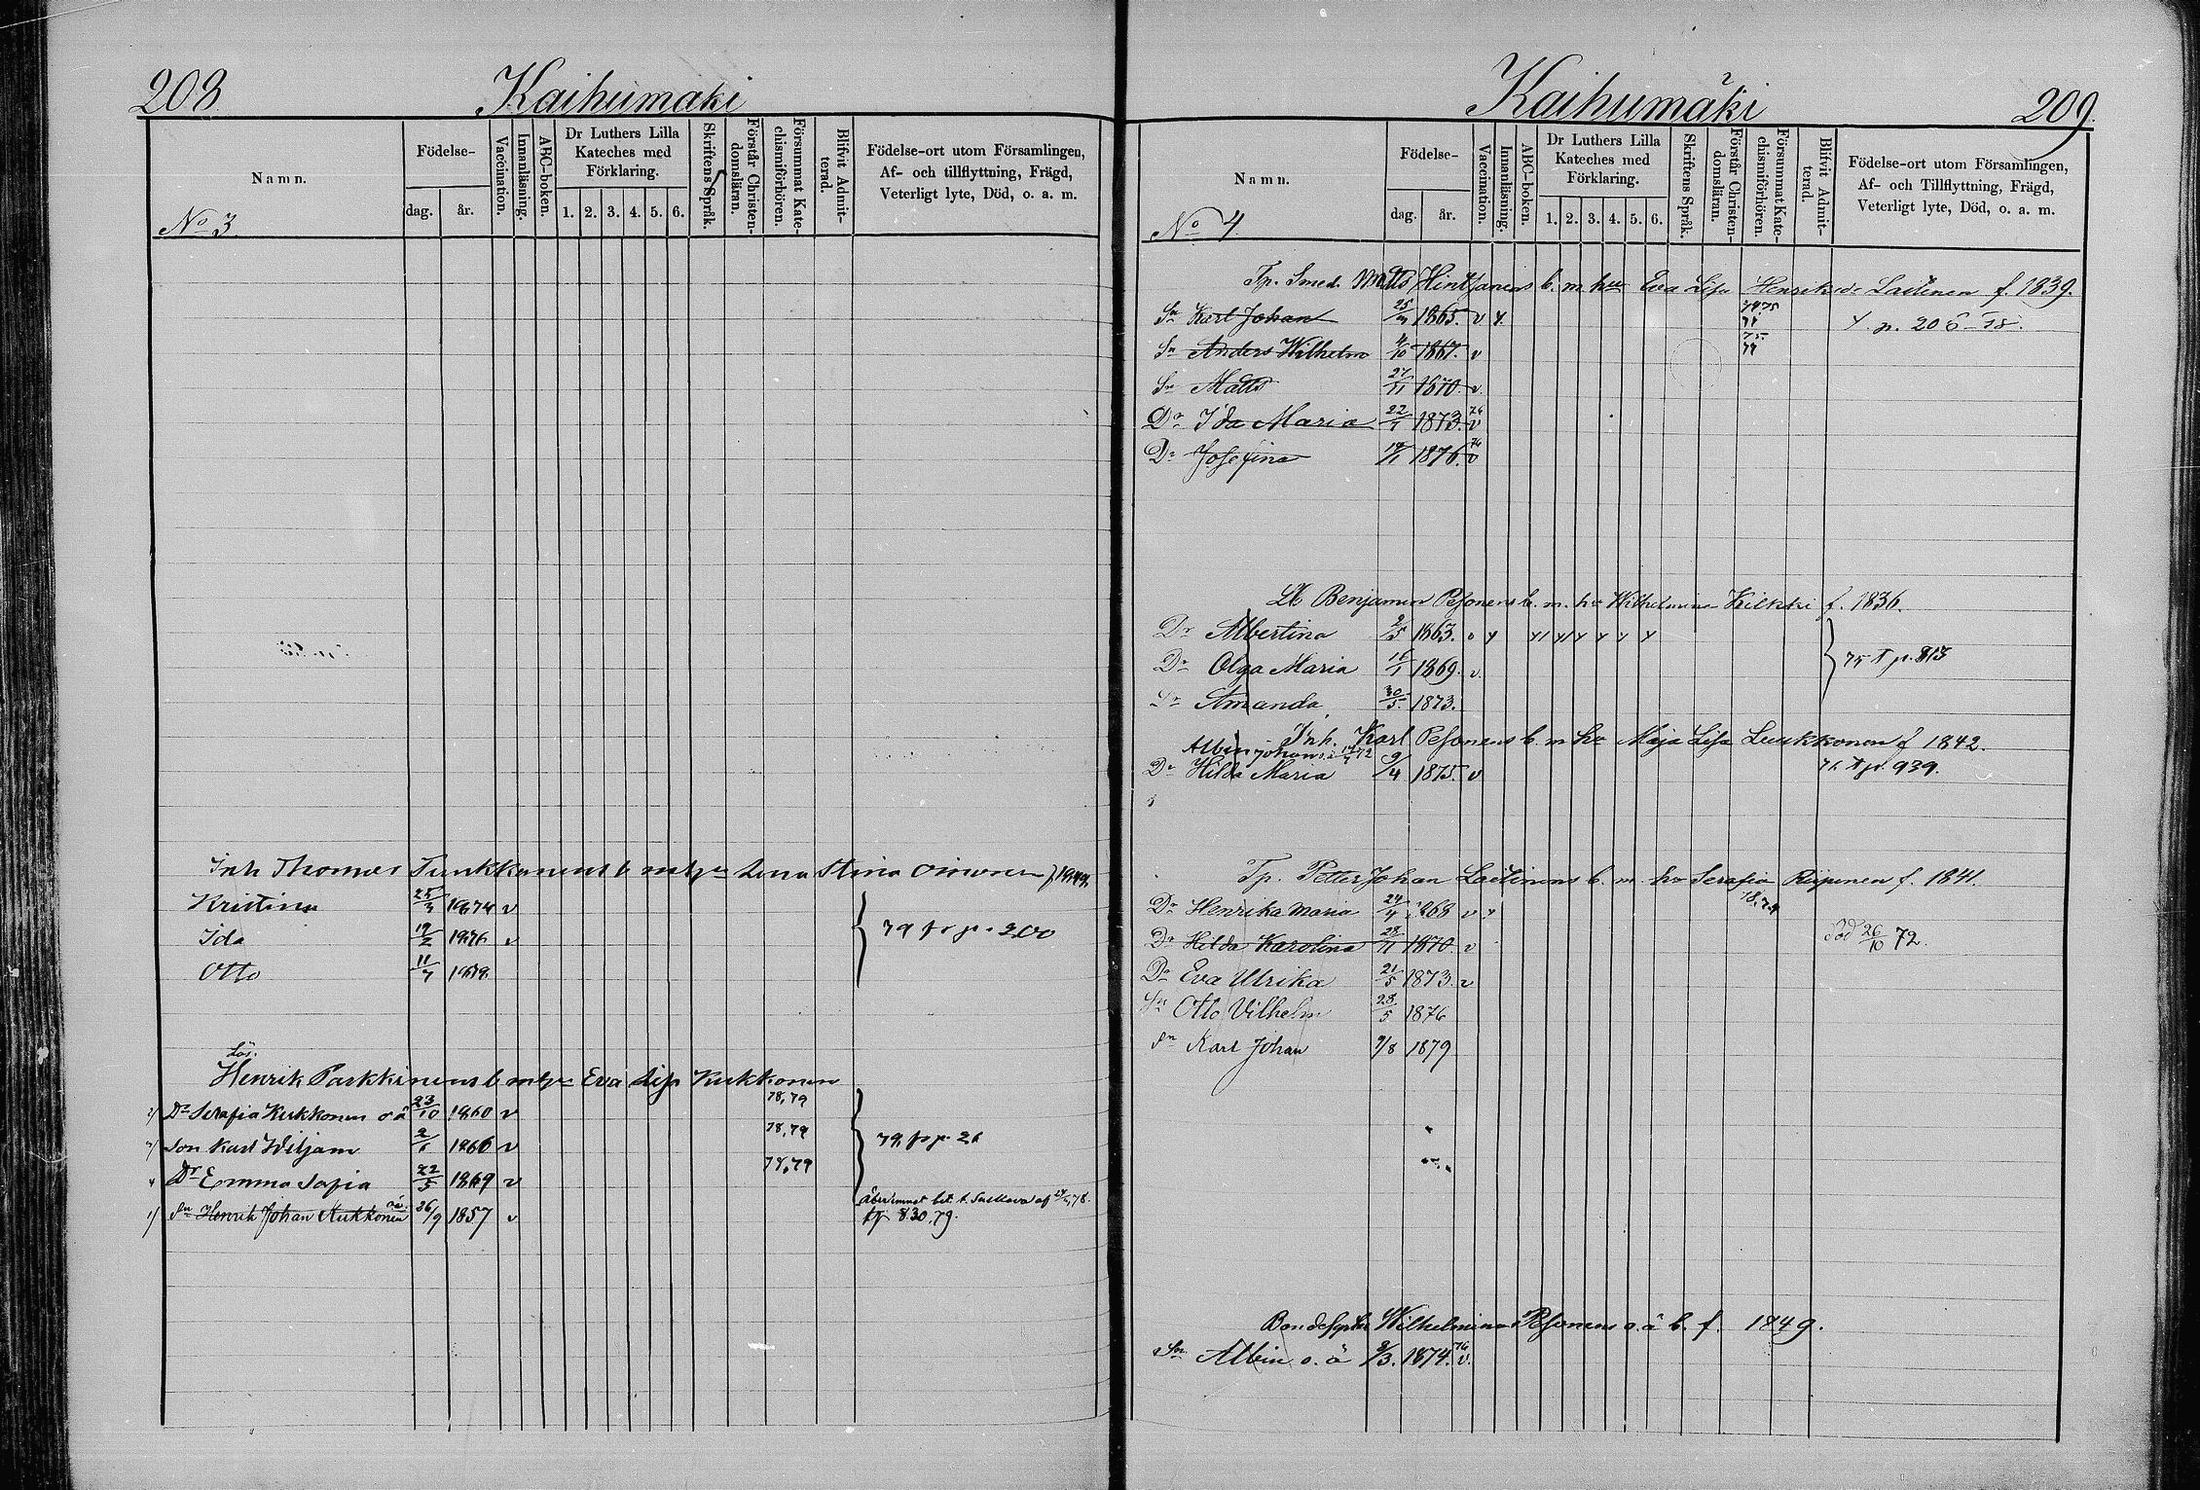 208
Kaihumäki
Namn.
Födelse-
dag.
år.
Vaccination.
Innanläsning.
ABC-boken.
Dr Luthers Lilla
Kateches med
Förklaring.
1. 2. 3. 4. 5. 6.
Skriftens Språk.
Förstår Christen-
domsläran.
Försummat Kate-
chismiförhören.
Blifvit Admit-
terad.
Födelse-ort utom Församlingen,
Af- och tillflyttning, Frägd,
Veterligt lyte, Död, o. a. m.
No 3.
Inh Thomas b m hu Lena Stina
Kristina 25/3 1874 v
Ida 19/2 1876 v 79 p. 200
Otto 11/7 1878
Lös.
Henrik Parkkinens b m hu Eva Lisa Kukkonen
2) Dr Serafia Kukkonen o ä 23/10 1860 v 78,79
3) Son Karl Wiljam 2/1 1866 v 78,79 79, p. 26
4 Dr Emma Sofia 22/5 1869 v 78,79
1) Sn Henrik Johan Kukkonen 26/9 1857 v 830,79.
Kaihumäki
209.
Namn.
Födelse-
dag.
år.
Vaccination.
Innanläsning.
ABC-boken.
Dr Luthers Lilla
Kateches med
Förklaring.
1. 2. 3. 4. 5. 6.
Skriftens Språk.
Förstår Christen-
domsläran.
Försummat Kate-
chismiförhören.
Blifvit Admit-
terad.
Födelse-ort utom Församlingen,
Af- och Tillflyttning, Frägd,
Veterligt lyte, Död, o. a. m.
No 4.
Tp. Smed. Matts Hintsanens b. m. hu Eva Lisa Henriksdr Laitinen f. 1839.
Sn Karl Johan 1865. v
Sn Anders Wilhelm 4/10 1867. v
Sn Matts 27/11 1870. v.
Dr Ida Maria 22/1 1873. v
Dr Josefina 1876. v
Benjamin Pesonens b. m. hu Wilhelmina f. 1836.
Dr Albertina 2/5 1863.
Dr Olga Maria 11/1 1869. v. 75 p. 813
Dr Amanda 30/5 1873.
Inh. Karl Pesonens b. m hu Maja Lisa Luukkonen f 1842.
Albin Johan
Dr Hilda Maria 9/4 1875. v p. 939.
Tp. Petter Johan Laitinens b. m. hu Serafia f. 1841.
Dr Henrika Maria 24/4 1868 v
Dr Hilda Karolina 28/11 1870. v Död 26/10 72.
Dr Eva Ulrika 21/5 1873. v
Sn Otto Vilhelm 28/5 1876
Sn Karl Johan 9/8 1879
Wilhelmina Pesonens o. ä b. f. 1849.
Sn Albin o. ä 9/3. 1874. v.